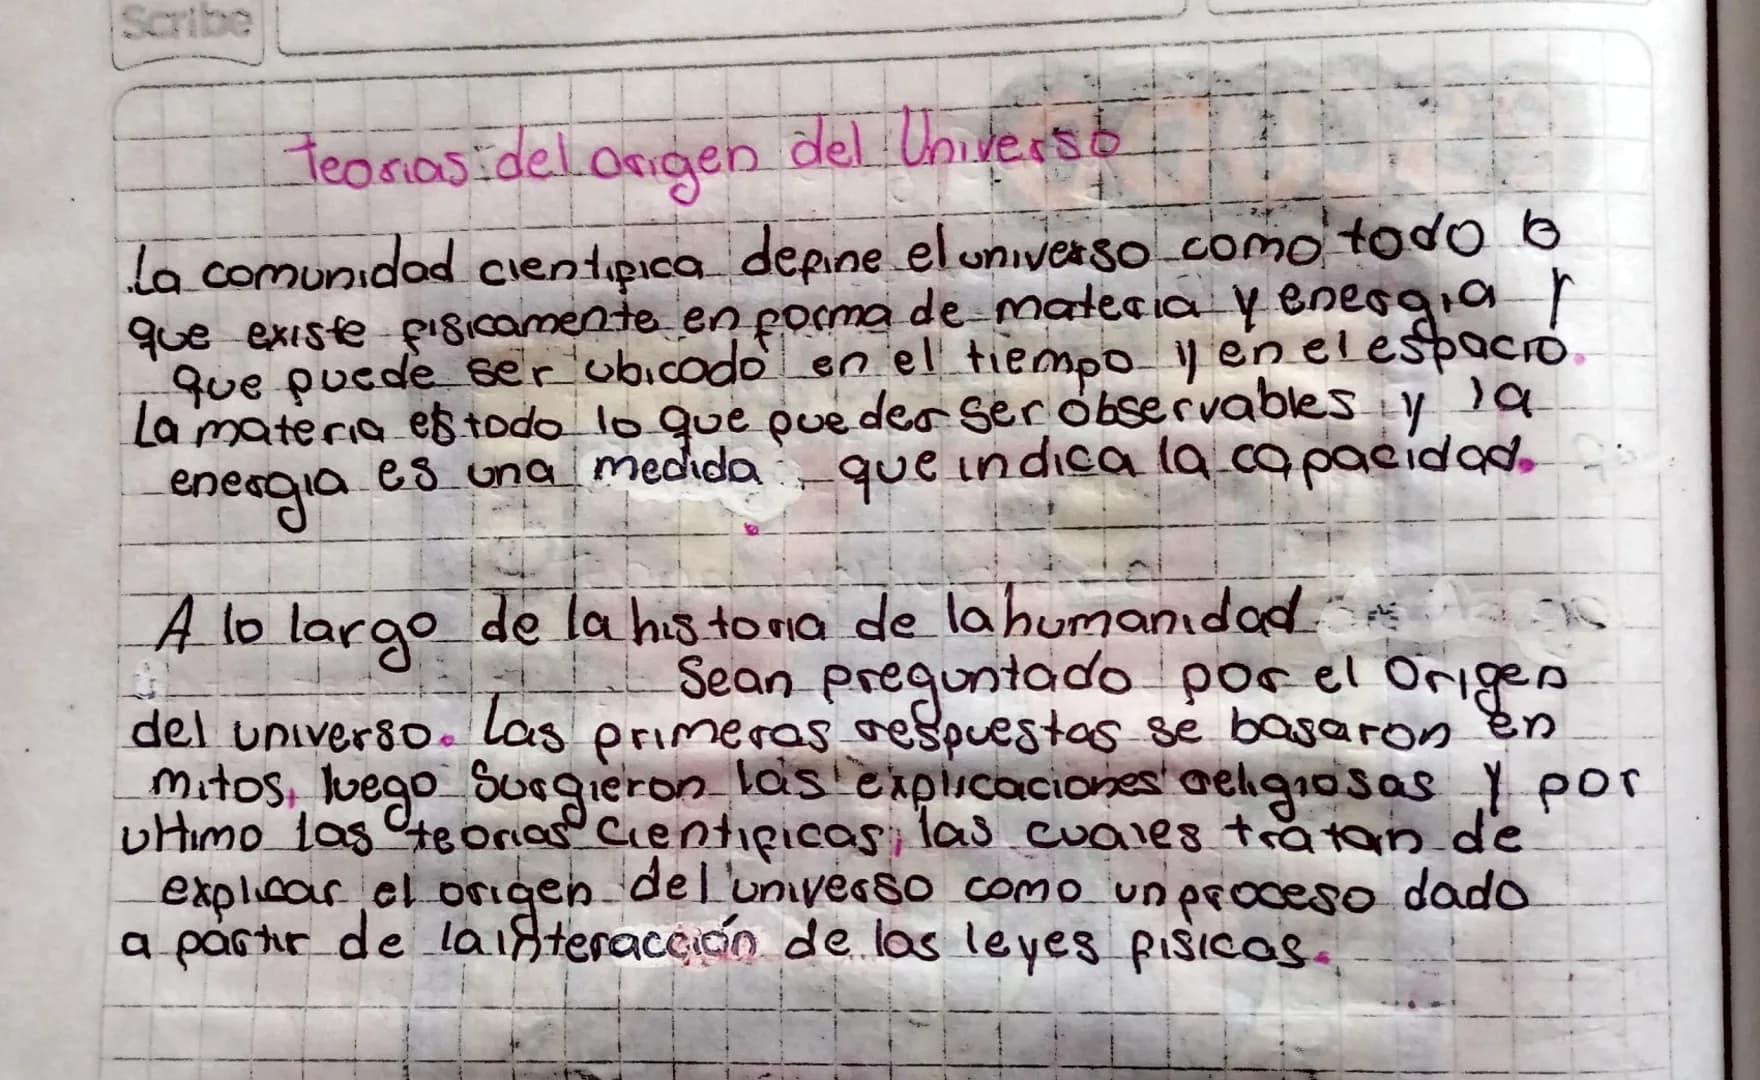 Scribe
Teorias del origen del Universo
La comunidad cientifica define el universo como todo lo
que existe fisicamente en forma de materia y energia y
que puede ser ubicado en el tiempo y en el espacio.
La materia es todo lo que puedes ser observables y la
energia es una medida que indica la capacidad.
A lo largo de la historia de la humanidad
Sean preguntado por el Origen
del universo. Las primeras respuestas se basaron en
mitos, luego Surgieron las explicaciones religiosas y por
ultimo las teorias cientificas, las cuales tratan de
explicar el origen del universo como un proceso dado
a partir de la interacción de las leyes fisicas.